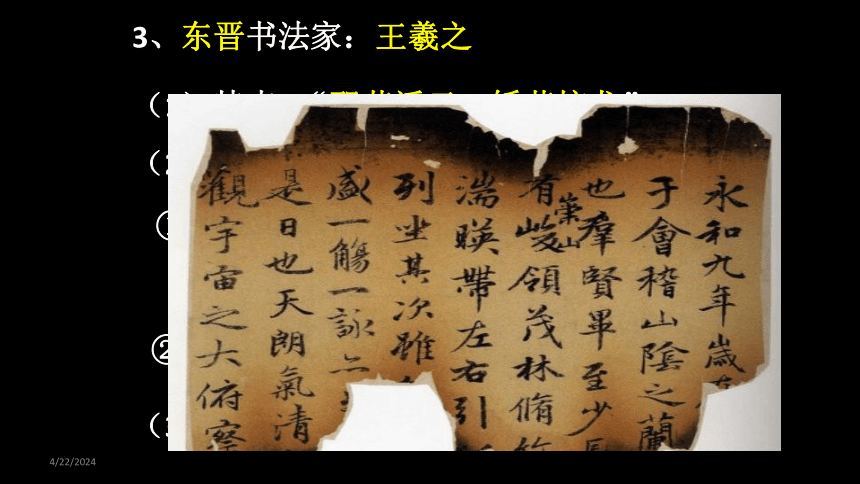 3、东晋书法家：王羲之
②
永和九年歲
于會稽山陰之蘭
也羣賢畢至少
崇山
有峻領茂林脩
湍暎帶左右引
列坐其次雖
盛一觴一詠亦
是日也天朗氣清
觀宇宙之大俯察
4/22/2024